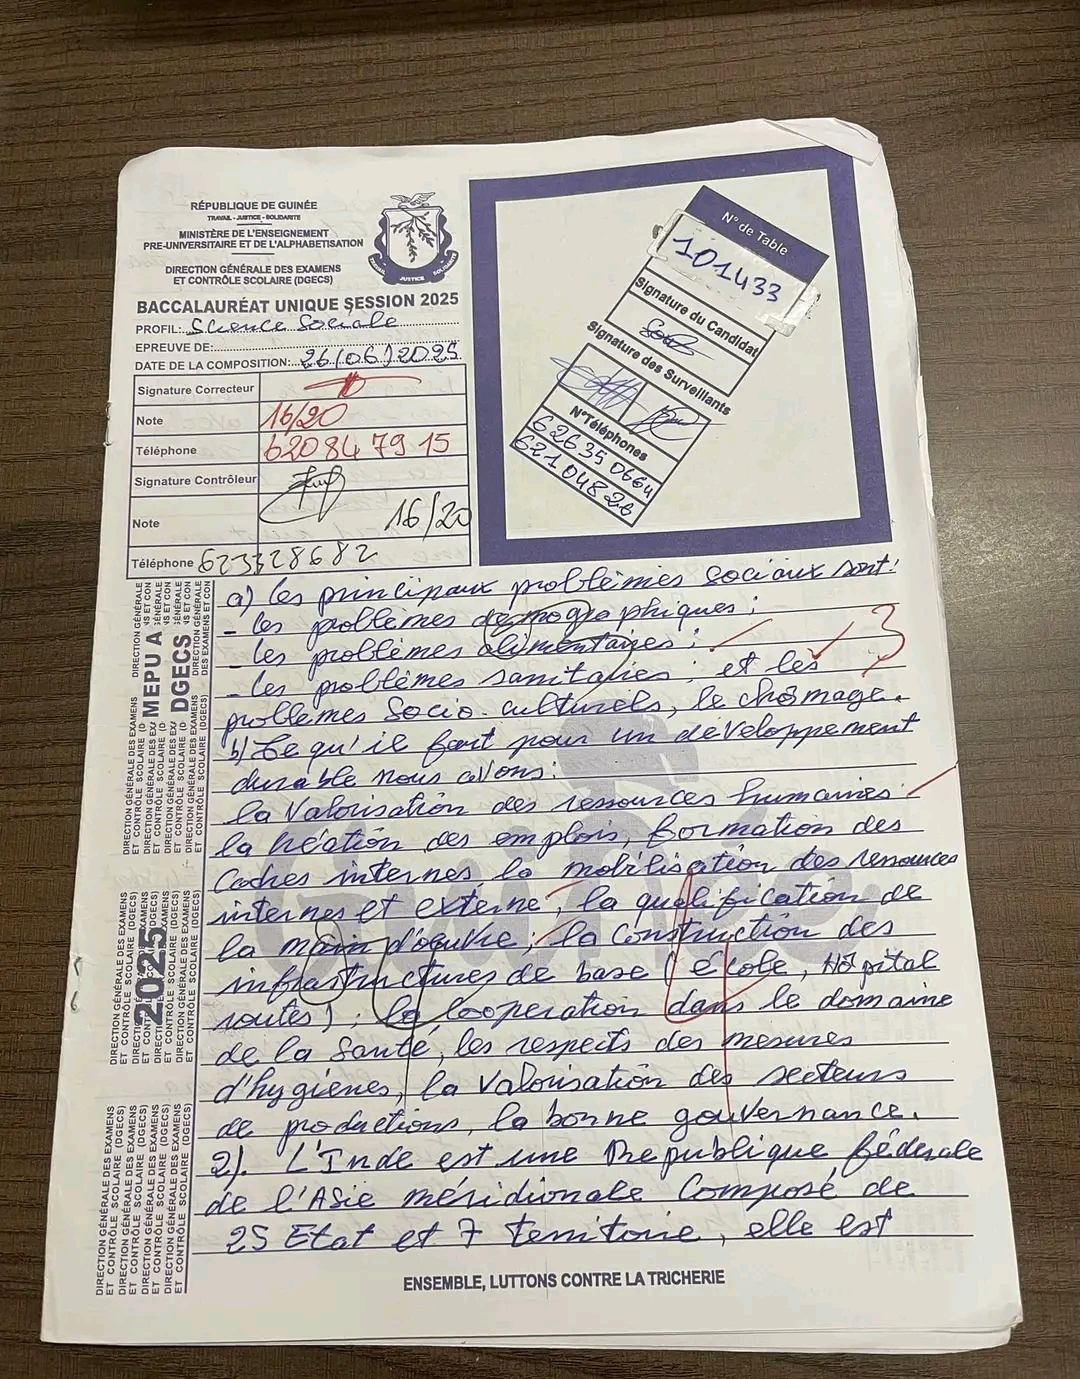 RÉPUBLIQUE DE GUINÉE
TRAVAIL - JUSTICE - SOLIDARITE
MINISTÈRE DE L'ENSEIGNEMENT
PRE-UNIVERSITAIRE ET DE L'ALPHABETISATION
DIRECTION GÉNÉRALE DES EXAMENS
ET CONTRÔLE SCOLAIRE (DGECS)
BACCALAURÉAT UNIQUE SESSION 2025
PROFIL: Science Sociale
EPREUVE DE:
DATE DE LA COMPOSITION: 26/06/2025
Signature Correcteur
Note 16/20
Téléphone 620 84 79 15
Signature Contrôleur
Note 16/20
Téléphone 623328682
N° de Table
101433
Signature du Candidat
Signature des Surveillants
N°Téléphones
MEPU A
DGECS
2025
DIRECTION GÉNÉRALE DES EXAMENS
ET CONTRÔLE SCOLAIRE (DGECS)
a) les principaux problèmes sociaux sont:
- les problèmes démographiques;
- les problèmes alimentaires;
3
- les problèmes sanitaires; et les
problèmes socio-culturels, le chômage.
b) Ce qu'il faut pour un développement
durable nous avons:
la valorisation des ressources humaines
la création des emplois, formation des
Cadres internes la mobilisation des ressources
internes et externe, la qualification de
la main d'œuvre; la construction des
infrastructures de base (école, Hôpital
routes); la coopération dans le domaine
de la santé, les respects des mesures
d'hygiènes, la valorisation des secteurs
de productions, la bonne gouvernance.
2). L'Inde est une République fédérale
de l'Asie méridionale Composé de
25 Etat et 7 territoire, elle est
ENSEMBLE, LUTTONS CONTRE LA TRICHERIE